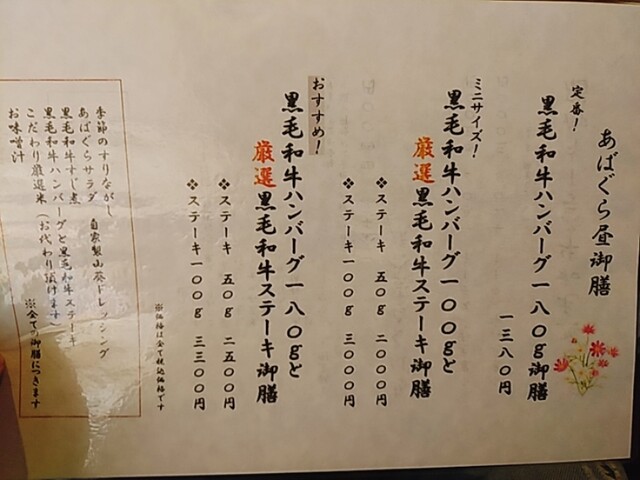 あばぐら昼御膳
定番!
黒毛和牛ハンバーグ一八〇g御膳
一三八〇円
ミニサイズ!
黒毛和牛ハンバーグ一〇〇gと
厳選黒毛和牛ステーキ御膳
❖ステーキ 五〇g 二〇〇〇円
❖ステーキ一〇〇g 三〇〇〇円
おすすめ!
黒毛和牛ハンバーグ一八〇gと
厳選黒毛和牛ステーキ御膳
❖ステーキ 五〇g 二五〇〇円
❖ステーキ一〇〇g 三三〇〇円
※価格は全て税込価格です
季節のすりながし
あばぐらサラダ 自家製山葵ドレッシング
黒毛和牛すじ煮
黒毛和牛ハンバーグと黒毛和牛ステーキ
こだわり厳選米(お代わり頂けます)
お味噌汁
※全ての御膳につきます